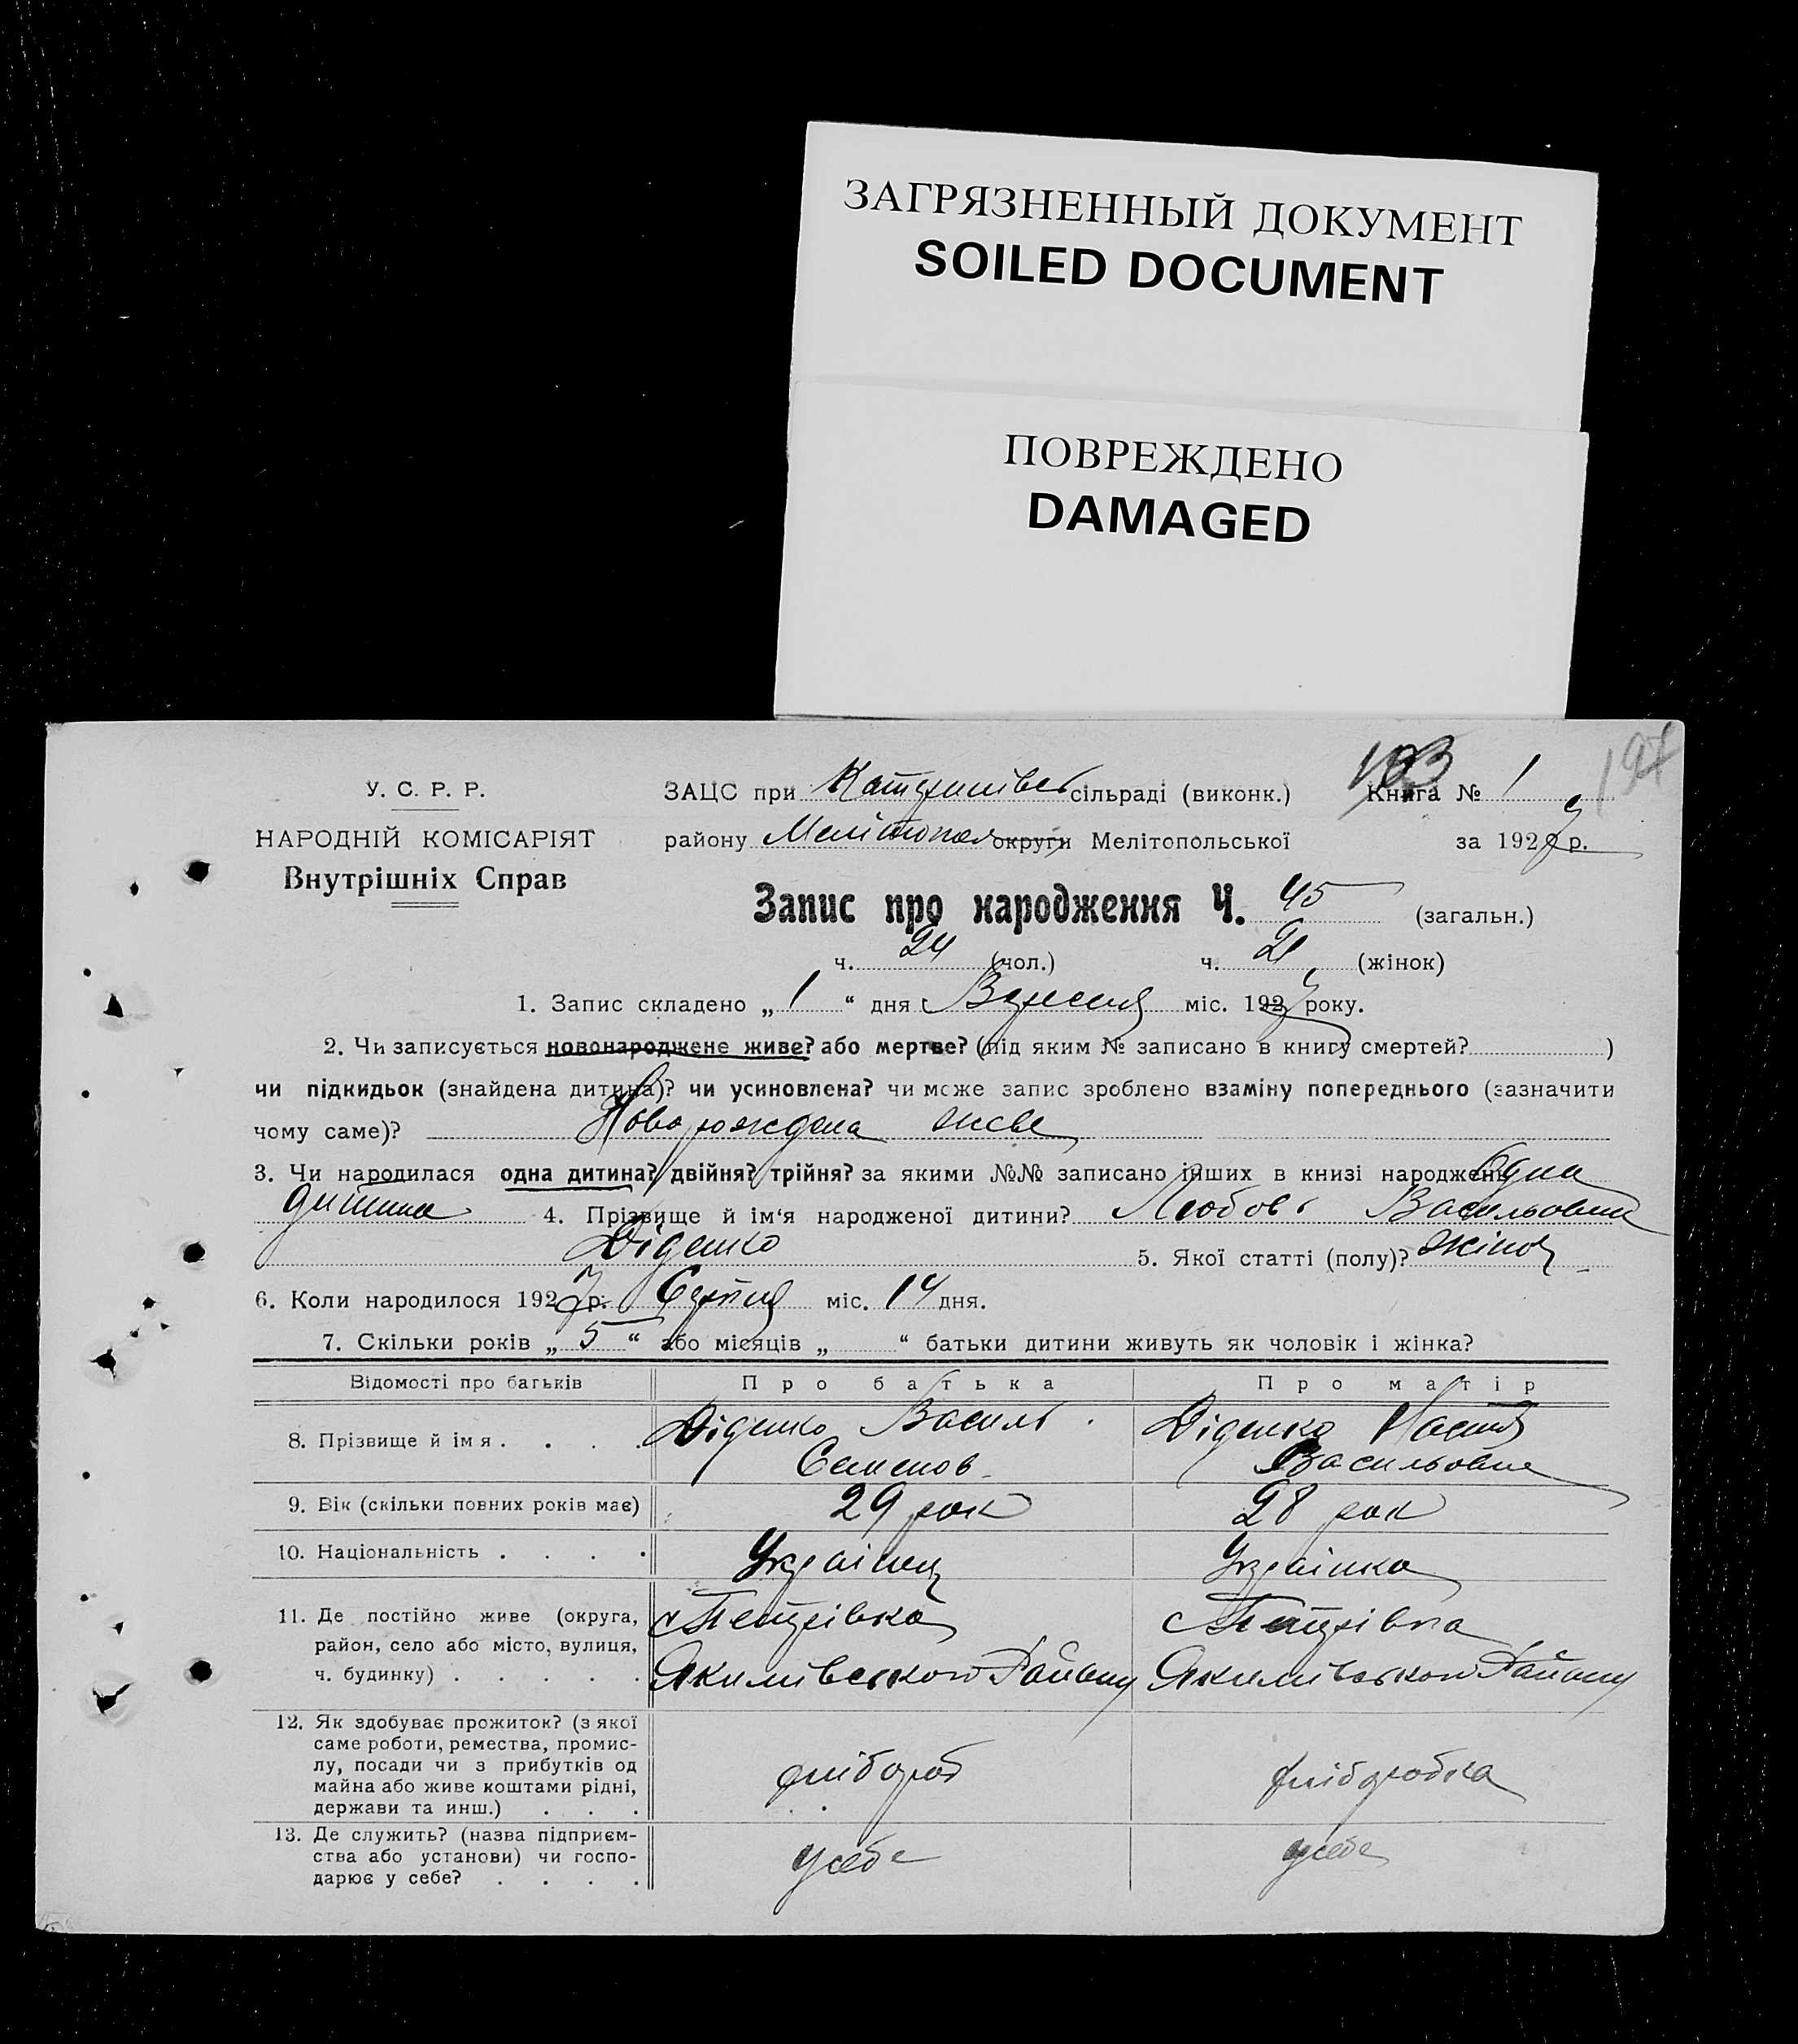 ЗАГРЯЗНЕННЫЙ ДОКУМЕНТ
SOILED DOCUMENT
ПОВРЕЖДЕНО
DAMAGED
197
У. С. Р. Р.
НАРОДНІЙ КОМІСАРІЯТ
Внутрішніх Справ
ЗАЦС при сільраді (виконк.) 103 Книга № 1
району Мелітопол округи Мелітопольської за 192 р.
Запис про народження Ч. 45 (загальн.)
ч. 24 (чол.) ч. 21 (жінок)
1. Запис складено „ 1 “ дня Вересня міс. 192 року.
2. Чи записується новонароджене живе? або мертве? (під яким № записано в книгу смертей? )
чи підкидьок (знайдена дитина)? чи усиновлена? чи може запис зроблено взаміну попереднього (зазначити
чому саме)? Новорождена живе
3. Чи народилася одна дитина? двійня? трійня? за якими №№ записано інших в книзі народжень одна
дитина 4. Прізвище й ім‘я народженої дитини? Любовь Васильовна
Діденко 5. Якої статті (полу)? жіноч
6. Коли народилося 192 р. Серпня міс. 14 дня.
7. Скільки років „ 5 “ або місяців „ “ батьки дитини живуть як чоловік і жінка?
Відомості про батьків Про батька Про матір
8. Прізвище й ім я . . . . Діденко Василь Діденко
Семенов Васильовна
9. Вік (скільки повних років має) 29 рок 28 рок
10. Національність . . . . Українец Українка
11. Де постійно живе (округа, с Петрівка с Петрівка
район, село або місто, вулиця,
ч. будинку) . . . . . Якимівського Району Якимівського Району
12. Як здобуває прожиток? (з якої
саме роботи, ремества, промис-
лу, посади чи з прибутків од хлібороб хліборобка
майна або живе коштами рідні,
держави та инш.) . . .
13. Де служить? (назва підприєм-
ства або установи) чи госпо- усебе усебе
дарює у себе? . . . .